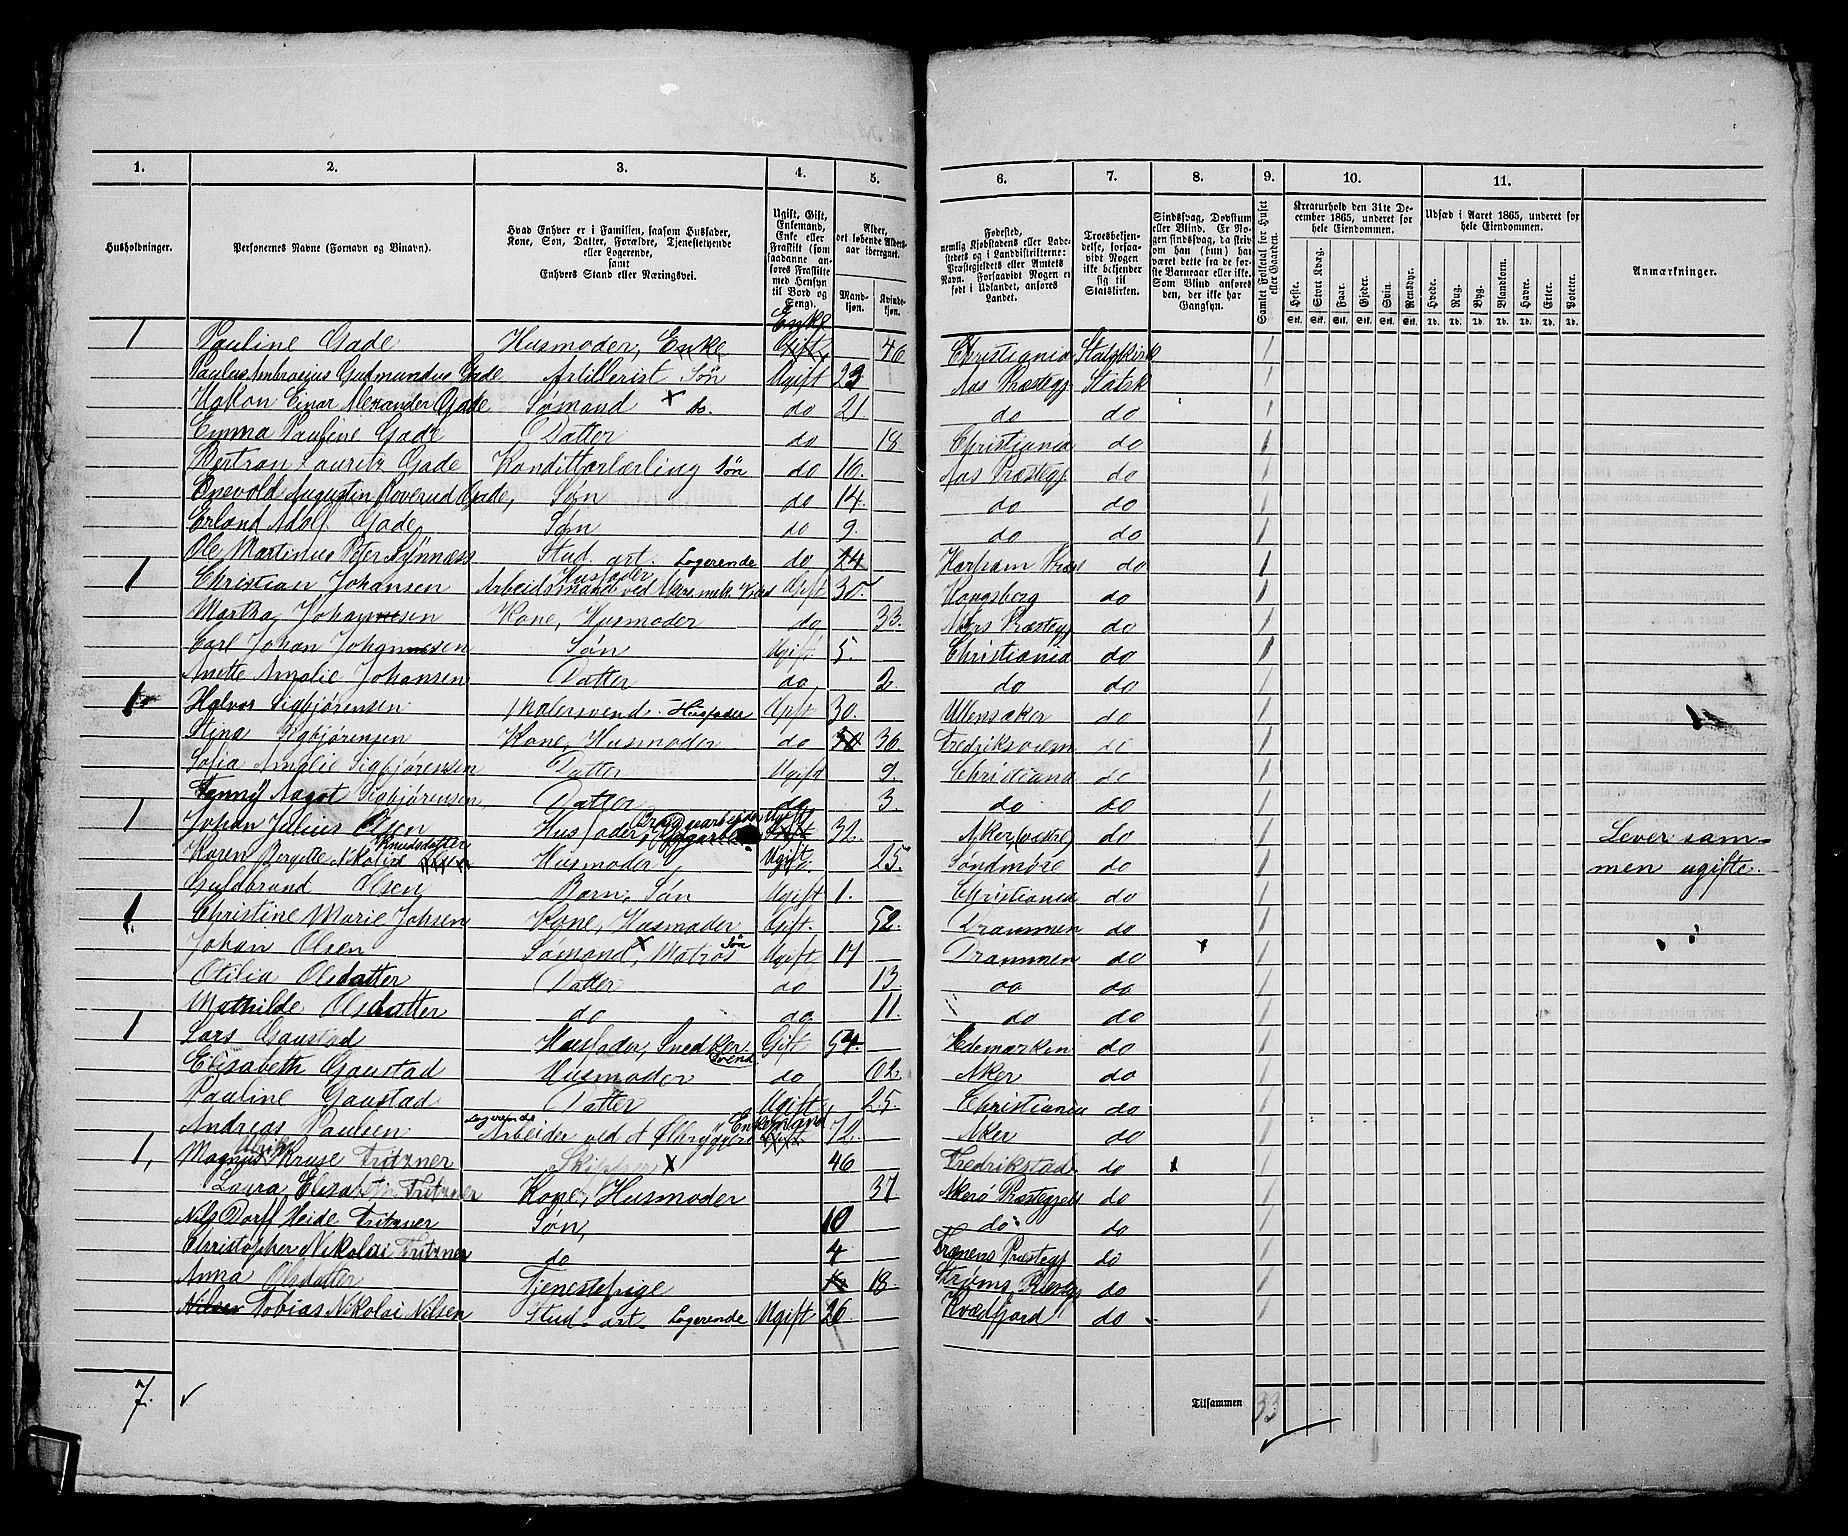 1. 2. 3. 4. 5. 6. 7. 8. 9. 10. 11.
Husholdninger.
Personernes Navne (Fornavn og Binavn).
Hvad Enhver er i Familien, saasom Husfader, Kone, Søn, Datter, Forældre, Tjenestetyende eller Logerende, samt Enhvers Stand eller Næringsvei.
Ugift, Gift, Enkemand, Enke eller Fraskilt (som saadanne anføres Fraskilte med Hensyn til Bord og Seng).
Alder, det løbende Aldersaar iberegnet.
Mandkjøn. Kvindekjøn.
Fødested, nemlig Kjøbstadens eller Ladestedets og i Landdistrikterne: Præstegjeldets eller Amtets Navn. Forsaavidt Nogen er født i Udlandet, anføres Landet.
Troesbekjendelse, forsaavidt Nogen ikke bekjender sig til Statskirken.
Sindssvag, Døvstum eller Blind. Er Nogen sindssvag, da skriv om han (hun) har været dette fra de første Barneaar eller ikke. Som Blind anføres den, der ikke har Gangsyn.
Samlet Folketal for Huset eller Gaarden.
Kreaturhold den 31te December 1865, underet for hele Eiendommen.
Heste. Stort Kvæg. Faar. Gjeder. Svin. Rensdyr.
Udsæd i Aaret 1865, underet for hele Eiendommen.
Hvede. Rug. Byg. Blandkorn. Havre. Erter. Poteter.
Anmærkninger.
Stk. Stk. Stk. Stk. Stk. Stk. Td. Td. Td. Td. Td. Td. Td.
1 Pauline Gade Husmoder, Enke Enke Gift, 46 Christiania Statskirk 1
Paulus Ambrosius Gudmundus Gade Artillerist Søn Ugift 23 Aas Præstegj Statsk 1
Hakon Einar Alexander Gade Sømand x do. do 21 do do 1
Emma Pauline Gade Datter do 18 Christiania do 1
Bertran Lauritz Gade Konditterlærling Søn do 16. Aas Præstegj. do 1
Enevold Augustin Roverud Gade, Søn do 14. do do 1
Erland Adolf Gade Søn do 9. do do 1
Ole Martinus Peter Synnæss Stud. art. Logerende do 24 Harham Præst do 1
1 Christian Johansen Husfader Arbeidsmand ved Mekanisk Værksted Gift 30. Kongsberg do 1
Martha Johannesen Kone, Husmoder do 33. Næs Præstegj do 1
Carl Johan Johannesen Søn Ugift 5. Christiania do 1
Anette Amalie Johansen Datter do, 2. do do 1
1 Halvor Sigbjørensen Malersvend. Husfader Gift 30. Ullensaker do 1
Stina Sigbjørensen Kone, Husmoder do 36. Fredriksværn do 1
Sofia Amalie Sigbjørensen Datter Ugift 9 Christiania do 1
Fanny Nagot Sigbjørensen Datter do 3. do do 1
1 Johan Julius Olsen Husfader, Ugift Gift 32. Aker (Vestre) do 1 Lever sam-
Karen Bergitte Nikoline Knudsdatter Husmoder Ugift. 25. Søndmøre do 1 men ugifte.
Guldbrand Olsen Barn, Søn Ugift 1. Christiania do 1
1 Christine Marie Johsen Kone, Husmoder Gift. 52. Drammen do 1
Johan Olsen Sømand x, Matros Søn Ugift 17 Drammen do 1
Otilia Olsdatter Datter do 13. do do 1
Mathilde Olsdatter do do 11. do do 1
1 Lars Gaustad Husfader, Snedker svend Gift 54. Hedemarken do 1
Elisabeth Gaustad Husmoder do 62. Aker do 1
Pauline Gaustad Datter Ugift 25. Christiania do 1
Andreas Paulsen Logerende Arbeider ved et Ølbryggeri Enkemand Gift. 72. Aker do 1
1, Magnus Ulrik Kruse Fritzner Skipper x 46 Fredrikstad do 1
Laura Elisabeth Fritzner Kone, Husmoder 37 Akerø Præstegjeld do 1
Nils Dorff Heide Fritzner Søn, 10 do do 1
Christopher Nikolai Fritzner do 4 Tranens Præstegj do 1
Anna Olsdatter Tjenestepige 18. Strøms Præstegj do 1
Nilsen Tobias Nikolai Nilsen Stud. art. Logerende Ugift 26 Kvædfjord do 1
7. ✓ Tilsammen 33